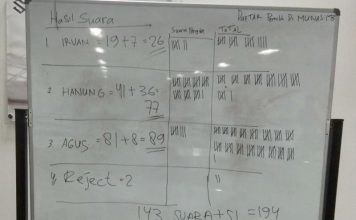 Hasil Suara
Suara
TOTAL
1. IRVAN = 19 + 7 = 26
2. HANUNG = 41 + 36 =
77
3. AGUS = 81 + 8 = 89
4 Reject = 2
143 SUARA + 51 = 194